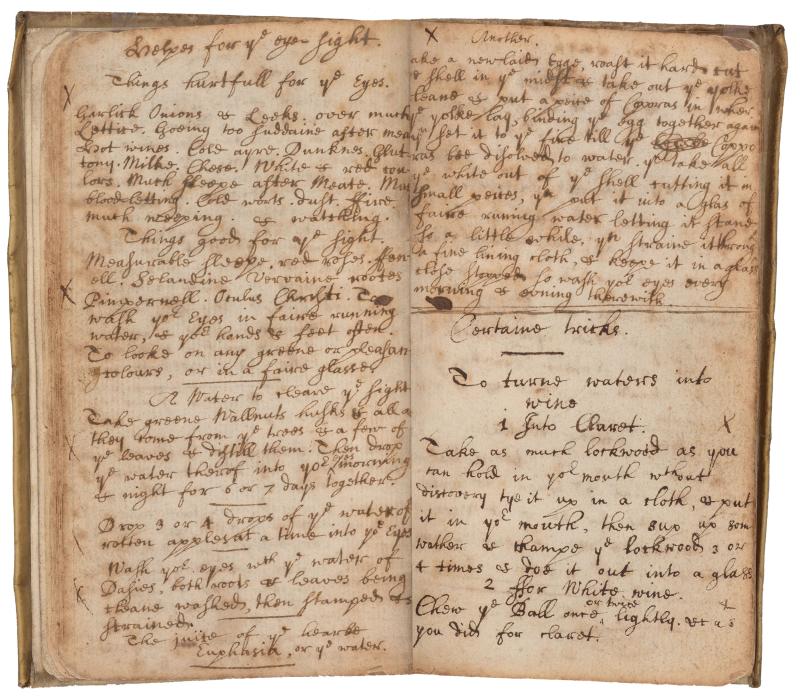 Helpes for yͤ eye sight.
Things hurtfull for yͤ Eyes.
Garlick Onions & Leeks. over much
Lettice. Goeing too suddaine after meat
Hot wines. Cold ayre. Dunknes. Glut
tony. Milke. Chese. White & red cou
lors. Much sleepe after Meate. Much
bloodletting. Cold worts. dust. ffire.
much weeping. & watching.
Things good for yͤ sight.
Measurable sleepe, red roses. ffen
ell. Selandine Vervaine rootes
Pimpernell. Oculus Christi. To
wash yoͬ Eyes in faire running
water, & yoͬ hands & feet often.
To looke on any greene or pleasan
colours, or in a faire glasse.
A Water to cleare yͤ sight
Take greene Wallnuts husks & all as
they come from yͤ trees & a few of
yͤ leaves & distill them. Then drop
yͤ water therof into yoͬ eyes morning
& night for 6 or 7 days together
Drop 3 or 4 drops of yͤ water of
rotten apples at a time into yͤ Eyes
Wash yoͬ eyes wth yͤ water of
Dasies, both roots & leaves being
cleane washed, then stamped &
strained.
The juice of yͤ hearbe
Euphrasia, or yͤ water.
x Another.
ake a new laid Egge, roast it hard cut
shell in yͤ midst & take out yͤ yolke
cleane & put a peice of Coppras in wher
yͤ yolke lay, binding yͤ egg together again
set it to yͤ fire till yͤ Coppo
ras bee disolved to water. yn take all
yͤ white out of yͤ shell cutting it in
small peices, yn put it into a glas of
faire runing water letting it stand
so a little while, yn straine it throug
a fine lining cloth, & keepe it in a glass
close stopped so wash yoͬ eyes every
morning & evning therewith.
Certaine tricks.
To turne waters into
wine
1 Into Claret.
Take as much lockwood as you
can hold in yoͬ mouth without
discovery tye it up in a cloth, & put
it in yoͬ mouth, then sup up som
wather & champe yͤ lockwood 3 or
4 times & doe it out into a glass
2 ffor White wine.
Chew yͤ Ball once or twice lightly. & as
you did for claret.